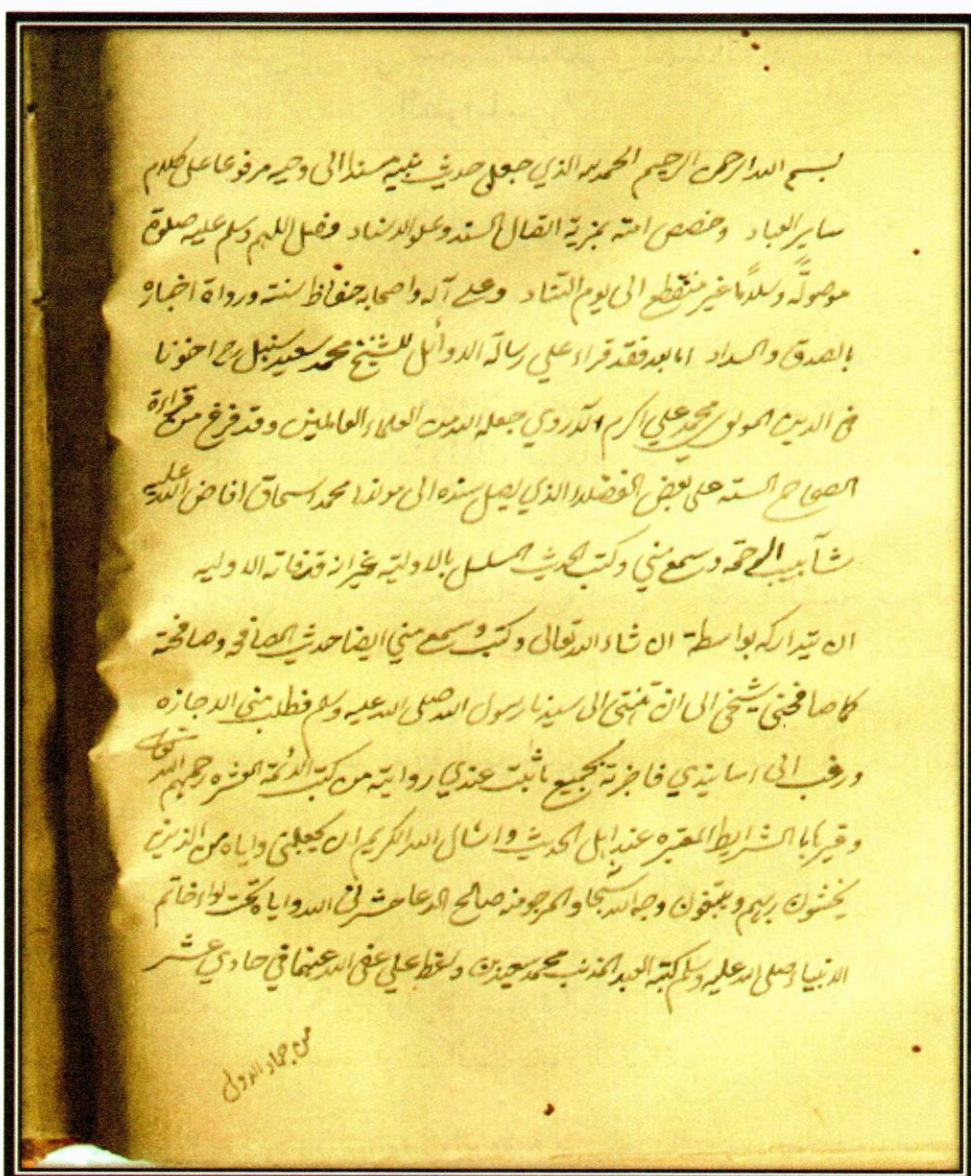 بسم الله الرحمن الرحيم الحمد لله الذي جعل حديث نبيه مسندا الى وحيه مرفوعا على كلام
ساير العباد وخصص امته بمزية اتصال السند وعلو الاسناد فصل اللهم وسلم عليه صلوة
موصولة وسلاما غير منقطع الى يوم التناد وعلى آله واصحابه حفاظ سنته ورواة اخباره
بالصدق والسداد اما بعد فقد قراء علي رسالة الاوائل للشيخ محمد سعيد سنبل رح اخونا
في الدين المولوي محمد علي اكرم الآروي جعله الله من العلماء العالمين وقد فرغ من قراءة
الصحاح الستة على بعض الفضلاء الذي يصل سنده الى مولانا محمد اسحاق افاض الله عليه
شآبيب الرحمة وسمع مني وكتب الحديث المسلسل بالاولية غير انه قد فاته الاوليه
ان يتداركه بواسطة ان شاء الله تعالى وكتب وسمع مني ايضا حديث المصافحه وصافحته
كما صافحني شيخي الى ان تنتهى الى سيدنا رسول الله صلى الله عليه وسلم فطلب مني الاجازه
ورغب الى اسانيدي فاجزته بجميع ما ثبت عندي روايته من كتب الائمة العشره رحمهم الله تعالى
وغيرها بالشرايط المعتبره عند اهل الحديث واسال الله الكريم ان يجعلني واياه من الذين
يخشون ربهم ويبتغون وجه الله سبحانه والمرجو منه صالح الدعا حشرني الله واياه تحت لواء خاتم
الانبياء صلى الله عليه وسلم كتبه العبد المذنب محمد سعيد بن واعظ علي عفى الله عنهما في حادي عشر
من جماد الاولى